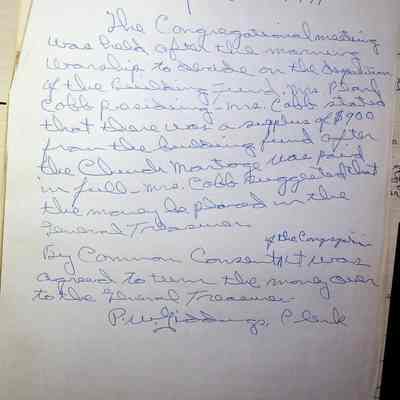 The Congregational meeting
was held after the morning
worship to decide on the disposition
of the Building Fund. Mrs Pearl
Cobb presiding, Mrs. Cobb stated
that there was a surplus of $900
from the building fund after
the Church Mortage was paid
in full. Mrs. Cobb suggested that
the money be placed in the
General Treasurer
of the Congregation
By Common Consent it was
agreed to turn the money over
to the General Treasurer.
P. W. Giddings, Clerk